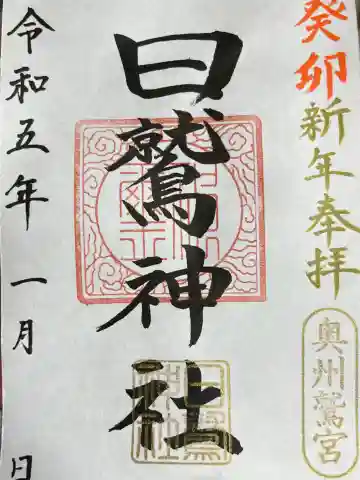 癸卯新年奉拝
奥州鷲宮
日鷲神社
日鷲神社
令和五年 一月 日